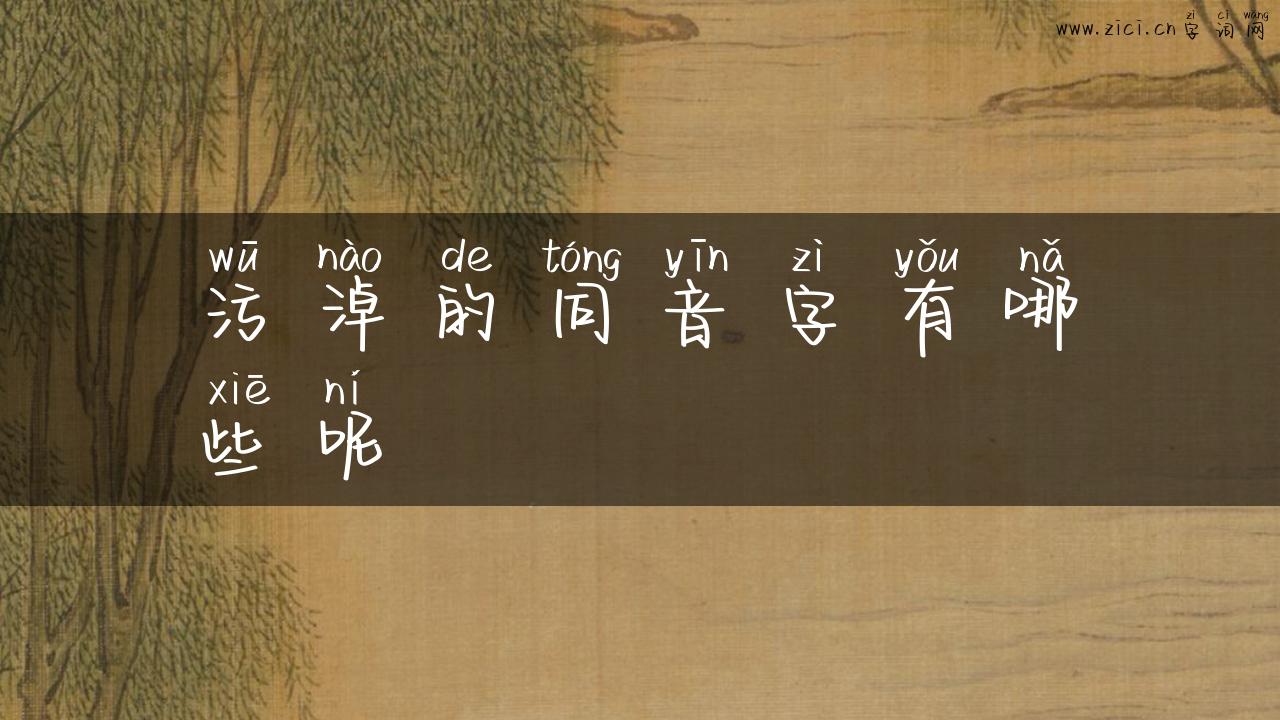 zì cí wǎng
www.zici.cn 字词网
wū nào de tóng yīn zì yǒu nǎ
污淖的同音字有哪
xiē ní
些呢